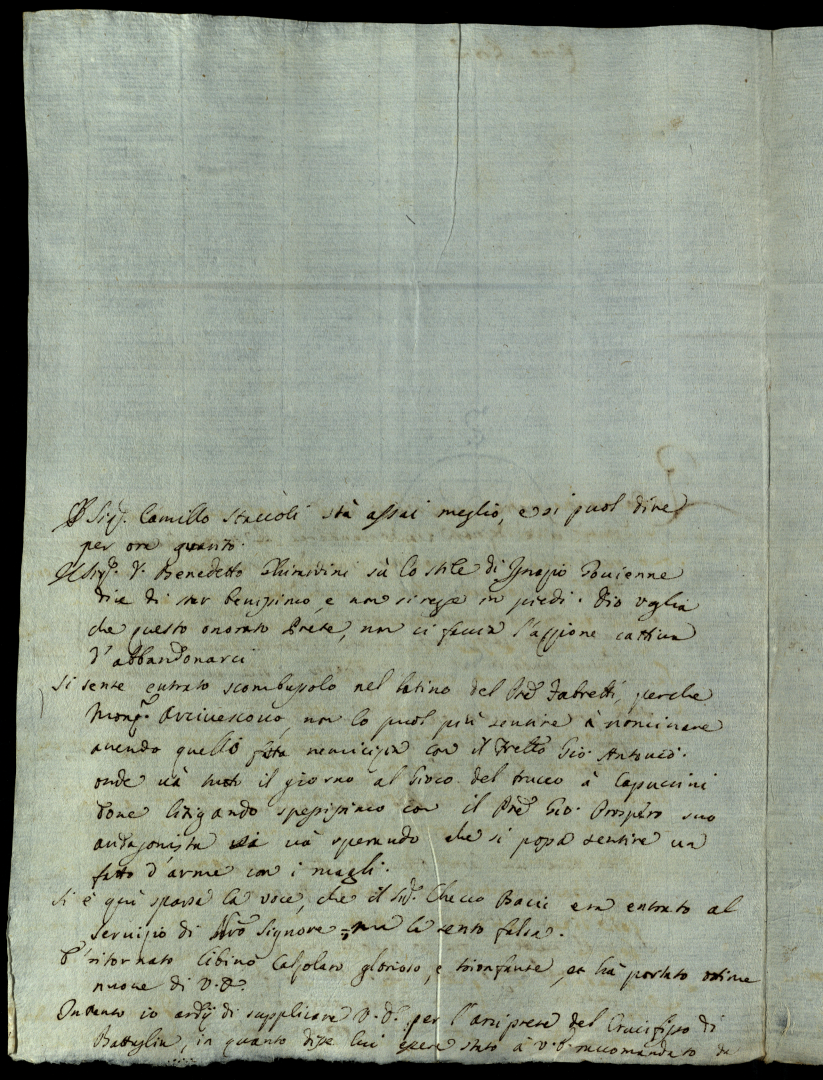 Il Sig.r Camillo Staccoli stà assai meglio, e si puol dire
per ora guarito.
Il Sig.r D. Benedetto su lo stile di Ignazio
dice di star benissimo, e non si regge in piedi. Dio voglia
che questo onorato Prete, non ci faccia l'azzione cattiva
d'abbandonarci
Si sente entrato scombussolo nel latino del Pre Fabretti, perche
Mons.r Arcivescovo, non lo puol più sentire à nominare
avendo quello fatta nemicizia con il Fretto Gio. Antonio.
onde và tutto il giorno al Gioco del trucco à Capuccini
dove litigando spessissimo con il Pre Gio. Prospero suo
antagonista và sperando che si possa sentire un
fatto d'arme con i magli.
Si è quì sparsa la voce, che il Sig.r Checco Bacci era entrato al
servizio di Nro Signore, ma la sento falsa.
E' ritornato Libino Calzolaro glorioso, e trionfante, et hà portato ottime
nuove di V.S.
Intanto io ardij di supplicare V.S. per l'arciprete del Crucifisso di
Battaglia, in quanto disse lui essere stato à V.S. raccomandato da